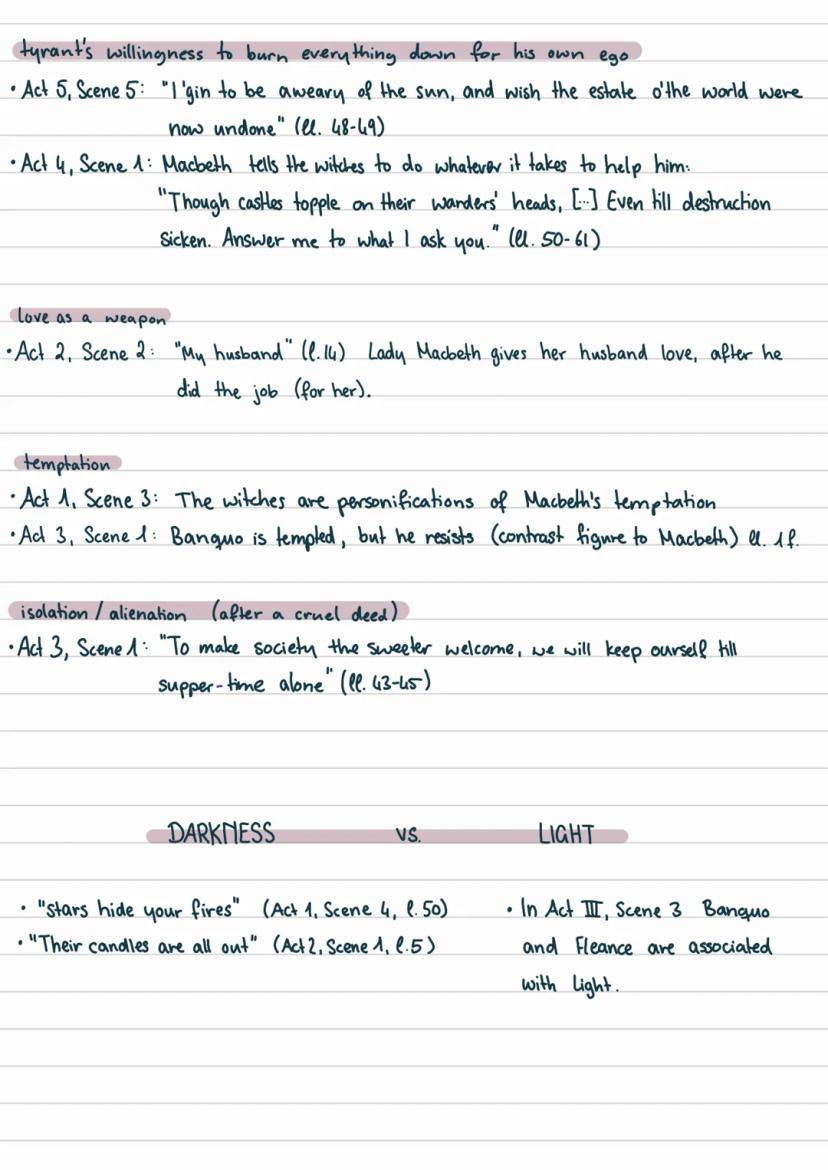 tyrant's willingness to burn everything down for his own ego
• Act 5, Scene 5: "I 'gin to be aweary of the sun, and wish the estate o'the world were
now undone" (ll. 48-49)
• Act 4, Scene 1: Macbeth tells the witches to do whatever it takes to help him:
"Though castles topple on their warders' heads, [...] Even till destruction
sicken. Answer me to what I ask you." (ll. 50-61)
love as a weapon
• Act 2, Scene 2: "My husband" (l.14) Lady Macbeth gives her husband love, after he
did the job (for her).
temptation
• Act 1, Scene 3: The witches are personifications of Macbeth's temptation
• Act 3, Scene 1: Banquo is tempted, but he resists (contrast figure to Macbeth) ll. 1f.
isolation / alienation (after a cruel deed)
• Act 3, Scene 1: "To make society the sweeter welcome, we will keep ourself till
supper-time alone" (ll. 43-45)
DARKNESS vs. LIGHT
• "Stars hide your fires" (Act 1, Scene 4, l. 50)
• "Their candles are all out" (Act 2, Scene 1, l.5)
• In Act III, Scene 3 Banquo
and Fleance are associated
with Light.